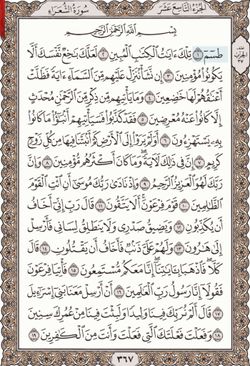 الجُزْءُ التَّاسِعَ عَشَرَ
سُورَةُ الشُّعَرَاءِ
بِسْمِ ٱللَّهِ ٱلرَّحْمَٰنِ ٱلرَّحِيمِ
طسٓمٓ ١ تِلْكَ ءَايَٰتُ ٱلْكِتَٰبِ ٱلْمُبِينِ ٢ لَعَلَّكَ بَٰخِعٌ نَّفْسَكَ أَلَّا
يَكُونُوا۟ مُؤْمِنِينَ ٣ إِن نَّشَأْ نُنَزِّلْ عَلَيْهِم مِّنَ ٱلسَّمَآءِ ءَايَةً فَظَلَّتْ
أَعْنَٰقُهُمْ لَهَا خَٰضِعِينَ ٤ وَمَا يَأْتِيهِم مِّن ذِكْرٍ مِّنَ ٱلرَّحْمَٰنِ مُحْدَثٍ
إِلَّا كَانُوا۟ عَنْهُ مُعْرِضِينَ ٥ فَقَدْ كَذَّبُوا۟ فَسَيَأْتِيهِمْ أَنۢبَٰٓؤُا۟ مَا كَانُوا۟
بِهِۦ يَسْتَهْزِءُونَ ٦ أَوَلَمْ يَرَوْا۟ إِلَى ٱلْأَرْضِ كَمْ أَنۢبَتْنَا فِيهَا مِن كُلِّ زَوْجٍ
كَرِيمٍ ٧ إِنَّ فِى ذَٰلِكَ لَءَايَةً وَمَا كَانَ أَكْثَرُهُم مُّؤْمِنِينَ ٨ وَإِنَّ
رَبَّكَ لَهُوَ ٱلْعَزِيزُ ٱلرَّحِيمُ ٩ وَإِذْ نَادَىٰ رَبُّكَ مُوسَىٰٓ أَنِ ٱئْتِ ٱلْقَوْمَ
ٱلظَّٰلِمِينَ ١٠ قَوْمَ فِرْعَوْنَ أَلَا يَتَّقُونَ ١١ قَالَ رَبِّ إِنِّىٓ أَخَافُ
أَن يُكَذِّبُونِ ١٢ وَيَضِيقُ صَدْرِى وَلَا يَنطَلِقُ لِسَانِى فَأَرْسِلْ
إِلَىٰ هَٰرُونَ ١٣ وَلَهُمْ عَلَىَّ ذَنۢبٌ فَأَخَافُ أَن يَقْتُلُونِ ١٤ قَالَ
كَلَّا فَٱذْهَبَا بِـَٔايَٰتِنَآ إِنَّا مَعَكُم مُّسْتَمِعُونَ ١٥ فَأْتِيَا فِرْعَوْنَ
فَقُولَآ إِنَّا رَسُولُ رَبِّ ٱلْعَٰلَمِينَ ١٦ أَنْ أَرْسِلْ مَعَنَا بَنِىٓ إِسْرَٰٓءِيلَ
١٧ قَالَ أَلَمْ نُرَبِّكَ فِينَا وَلِيدًا وَلَبِثْتَ فِينَا مِنْ عُمُرِكَ سِنِينَ
١٨ وَفَعَلْتَ فَعْلَتَكَ ٱلَّتِى فَعَلْتَ وَأَنتَ مِنَ ٱلْكَٰفِرِينَ ١٩
٣٦٧